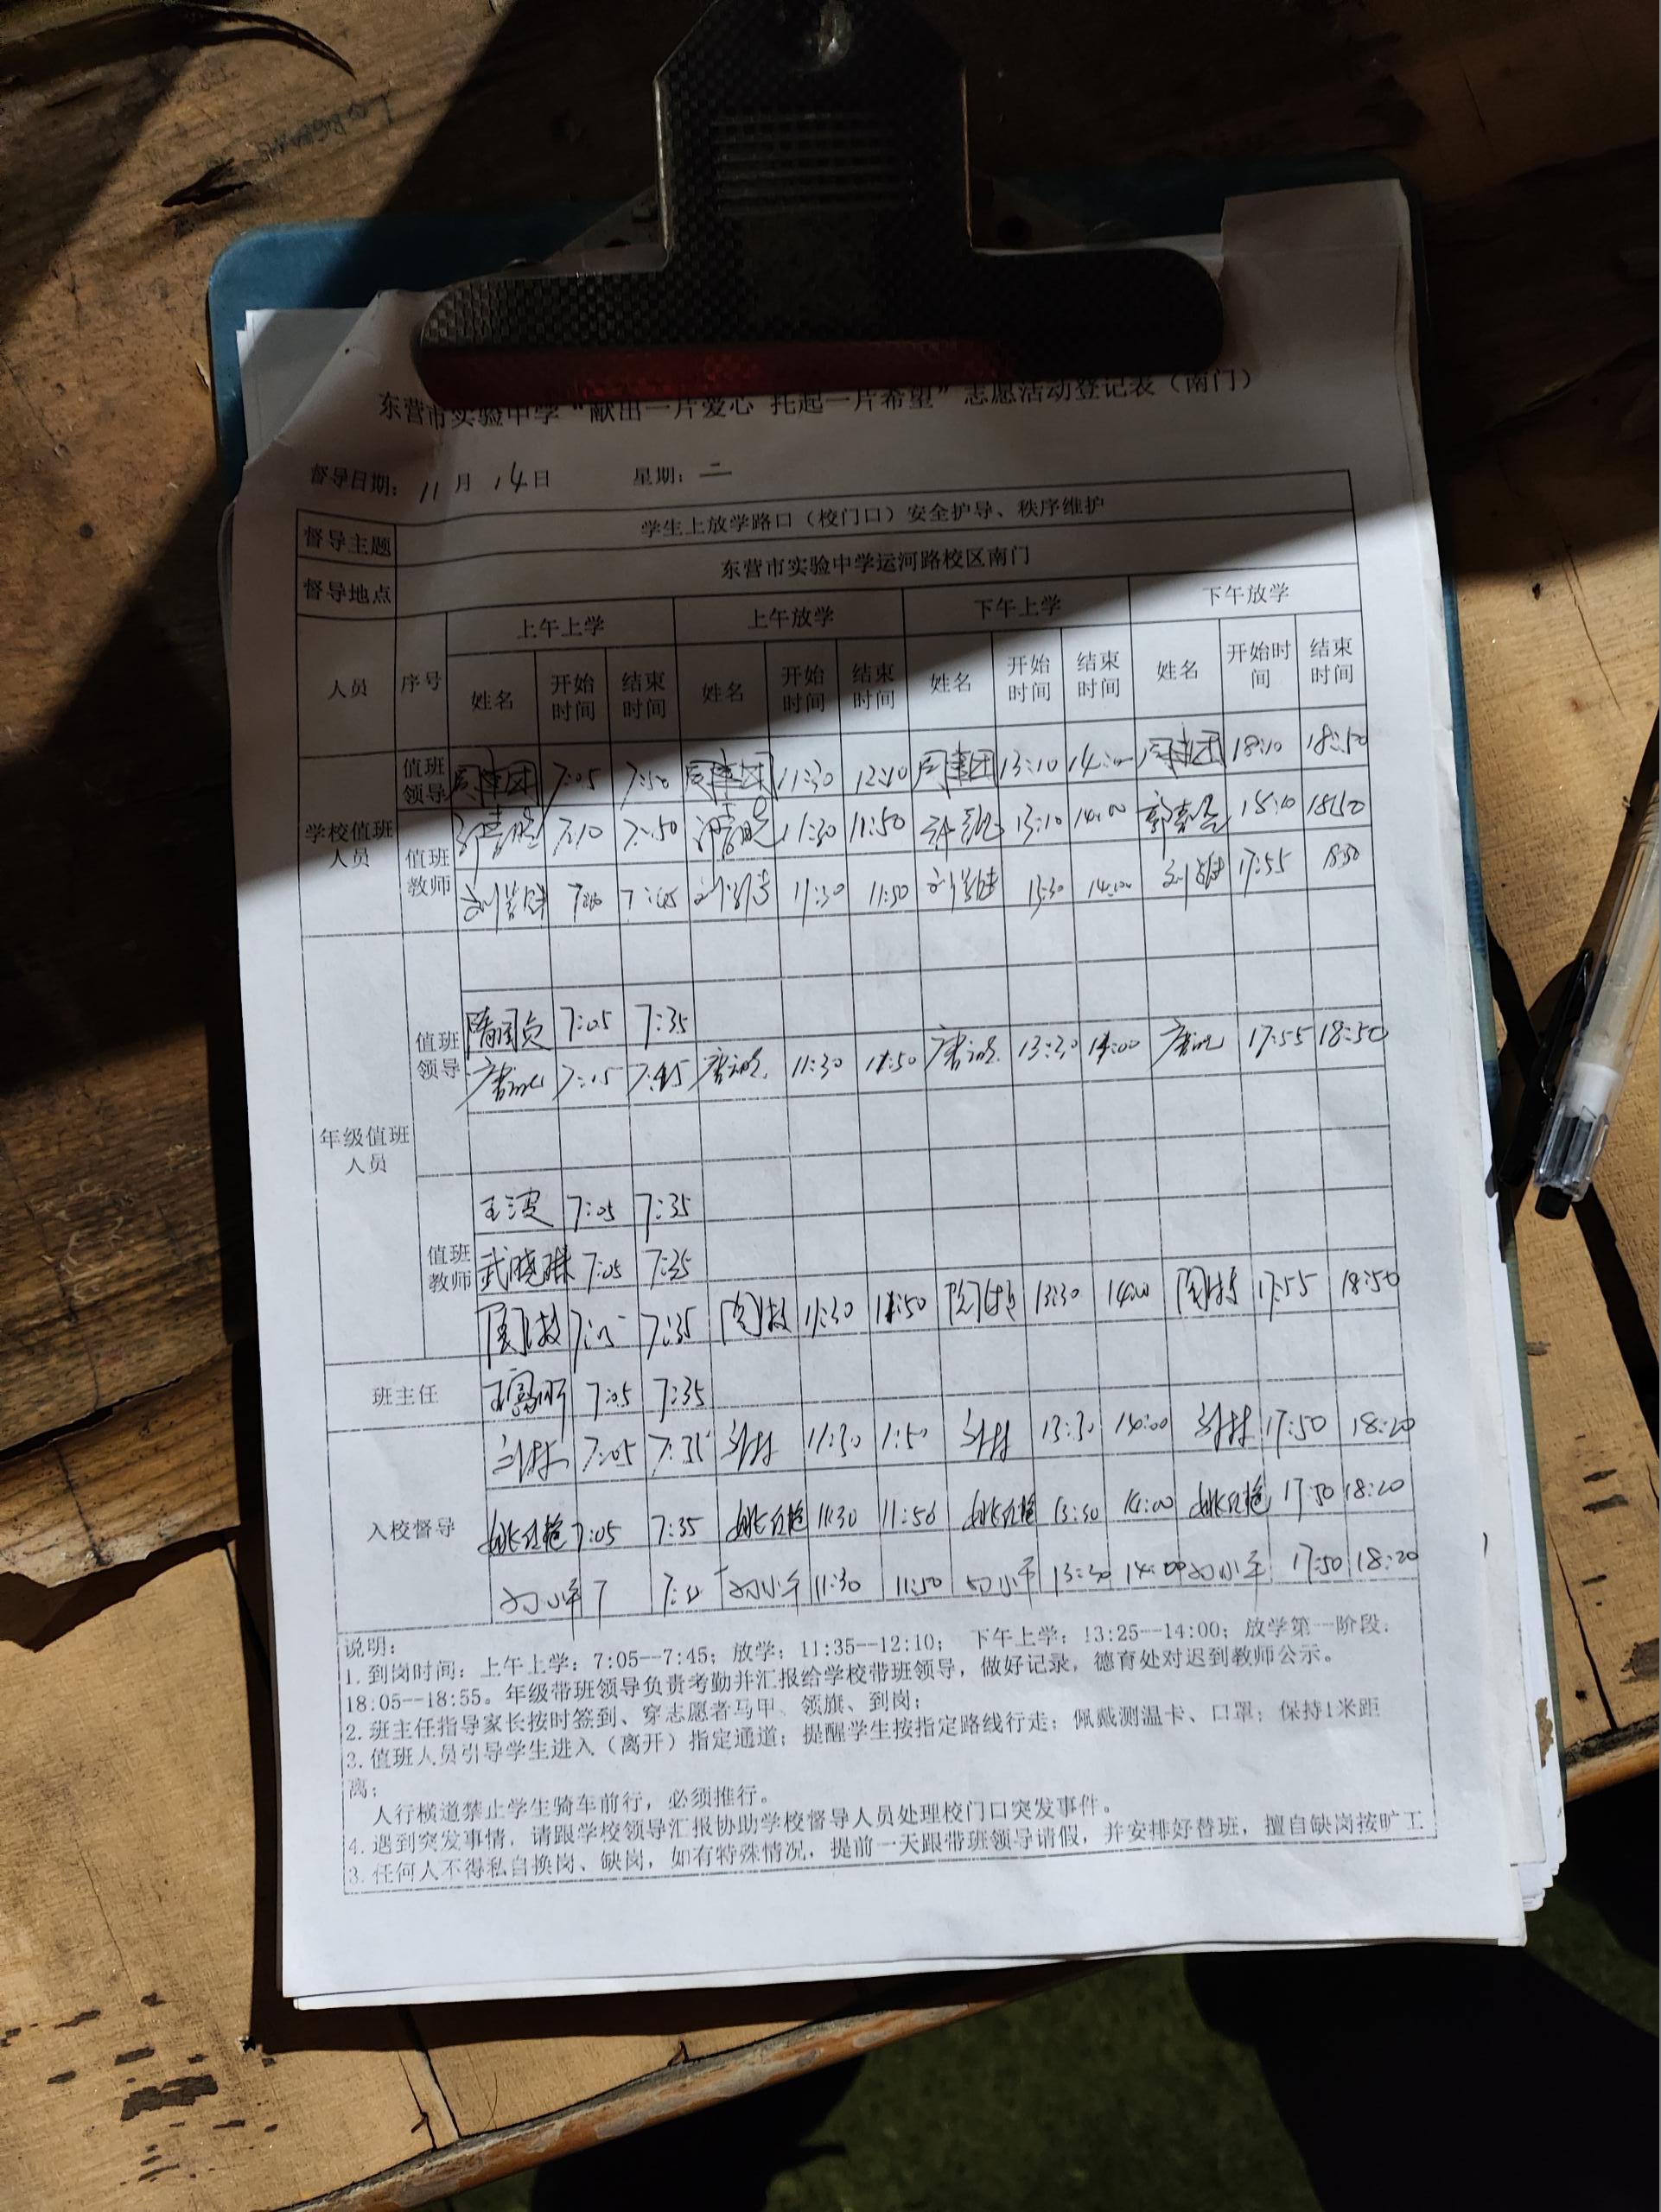 东营市实验中学“献出一片爱心 托起一片希望”志愿活动登记表（南门）
督导日期： 11 月 14 日 星期： 二
督导主题 学生上放学路口（校门口）安全护导、秩序维护
督导地点 东营市实验中学运河路校区南门
人员 序号 上午上学 上午放学 下午上学 下午放学
姓名 开始时间 结束时间 姓名 开始时间 结束时间 姓名 开始时间 结束时间 姓名 开始时间 结束时间
学校值班人员
值班领导 周建团 7:05 7:50 周建团 11:30 12:10 周建团 13:10 14:00 周建团 18:10 18:50
值班教师 7:10 7:50 11:30 11:50 13:10 14:00 18:10 18:50
11:30 11:50 13:30 14:00 17:55 18:50
年级值班人员
值班领导
隋国贞 7:05 7:35
7:15 7:45 11:30 11:50 13:30 14:00 17:55 18:50
值班教师
王波 7:05 7:35
武晓琳 7:05 7:35
7:35 11:30 11:50 13:30 14:00 17:55 18:50
班主任 7:05 7:35
入校督导
刘林 7:05 7:35 刘林 11:30 1:50 刘林 13:30 14:00 刘林 17:50 18:20
姚红艳 7:05 7:35 姚红艳 11:30 11:50 姚红艳 13:30 14:00 姚红艳 17:50 18:20
7 11:30 11:50 13:30 14:00 17:50 18:20
说明：
1. 到岗时间：上午上学：7:05--7:45；放学：11:35--12:10； 下午上学：13:25--14:00；放学第一阶段：
18:05--18:55。年级带班领导负责考勤并汇报给学校带班领导，做好记录，德育处对迟到教师公示。
2. 班主任指导家长按时签到、穿志愿者马甲、领旗、到岗；
3. 值班人员引导学生进入（离开）指定通道；提醒学生按指定路线行走；佩戴测温卡、口罩；保持1米距
离；
人行横道禁止学生骑车前行，必须推行。
4. 遇到突发事情，请跟学校领导汇报协助学校督导人员处理校门口突发事件。
3. 任何人不得私自换岗、缺岗，如有特殊情况，提前一天跟带班领导请假，并安排好替班，擅自缺岗按旷工